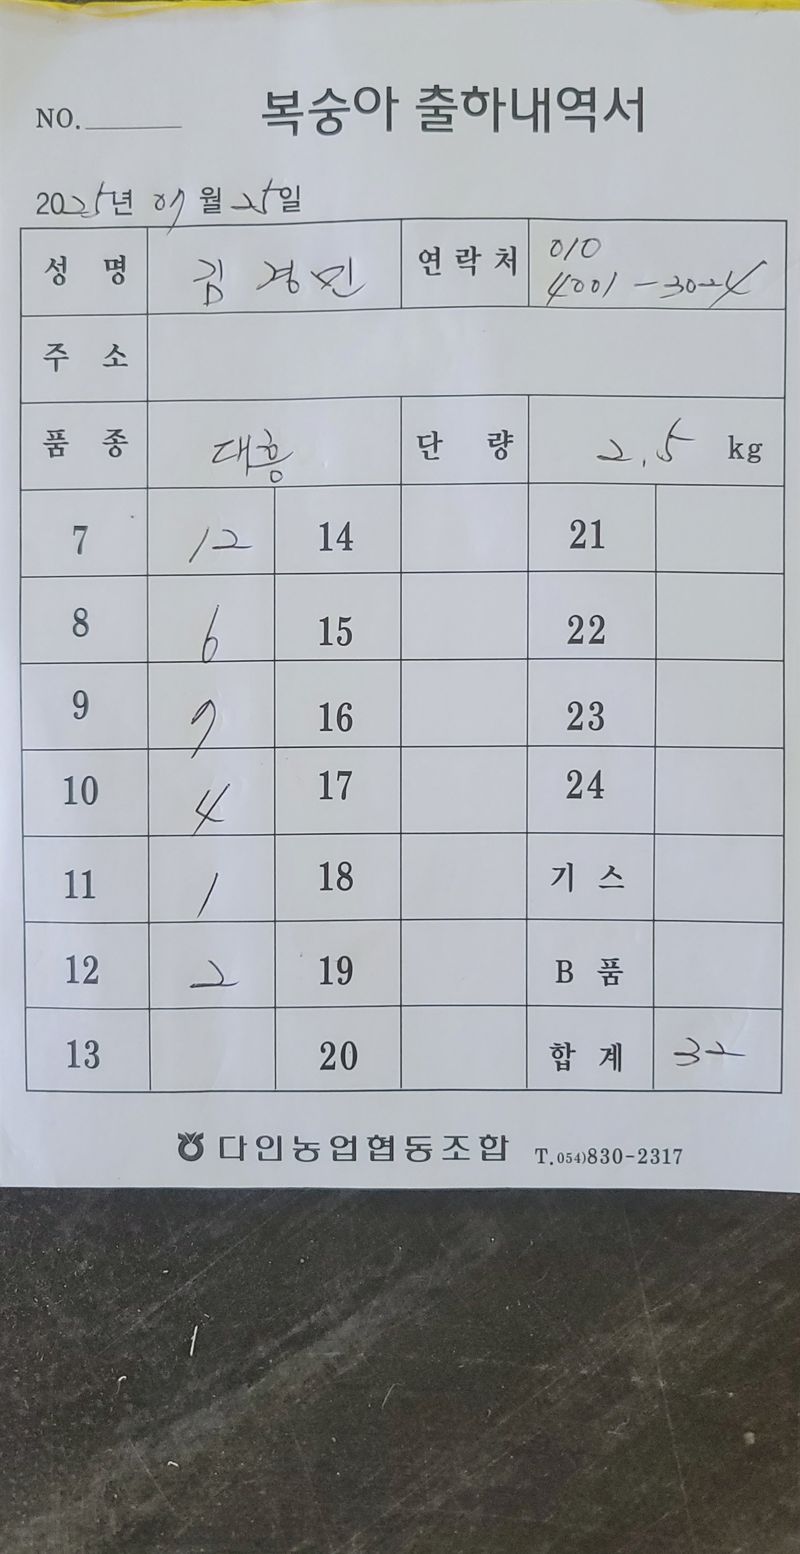 NO.
복숭아 출하내역서
2025년 07월 25일
성 명 김경민 연락처 010
4001-3024
주 소
품 종 대홍 단 량 2.5 kg
7 12 14 21
8 6 15 22
9 7 16 23
10 4 17 24
11 1 18 기 스
12 2 19 B 품
13 20 합 계 32
다인농업협동조합 T.054)830-2317